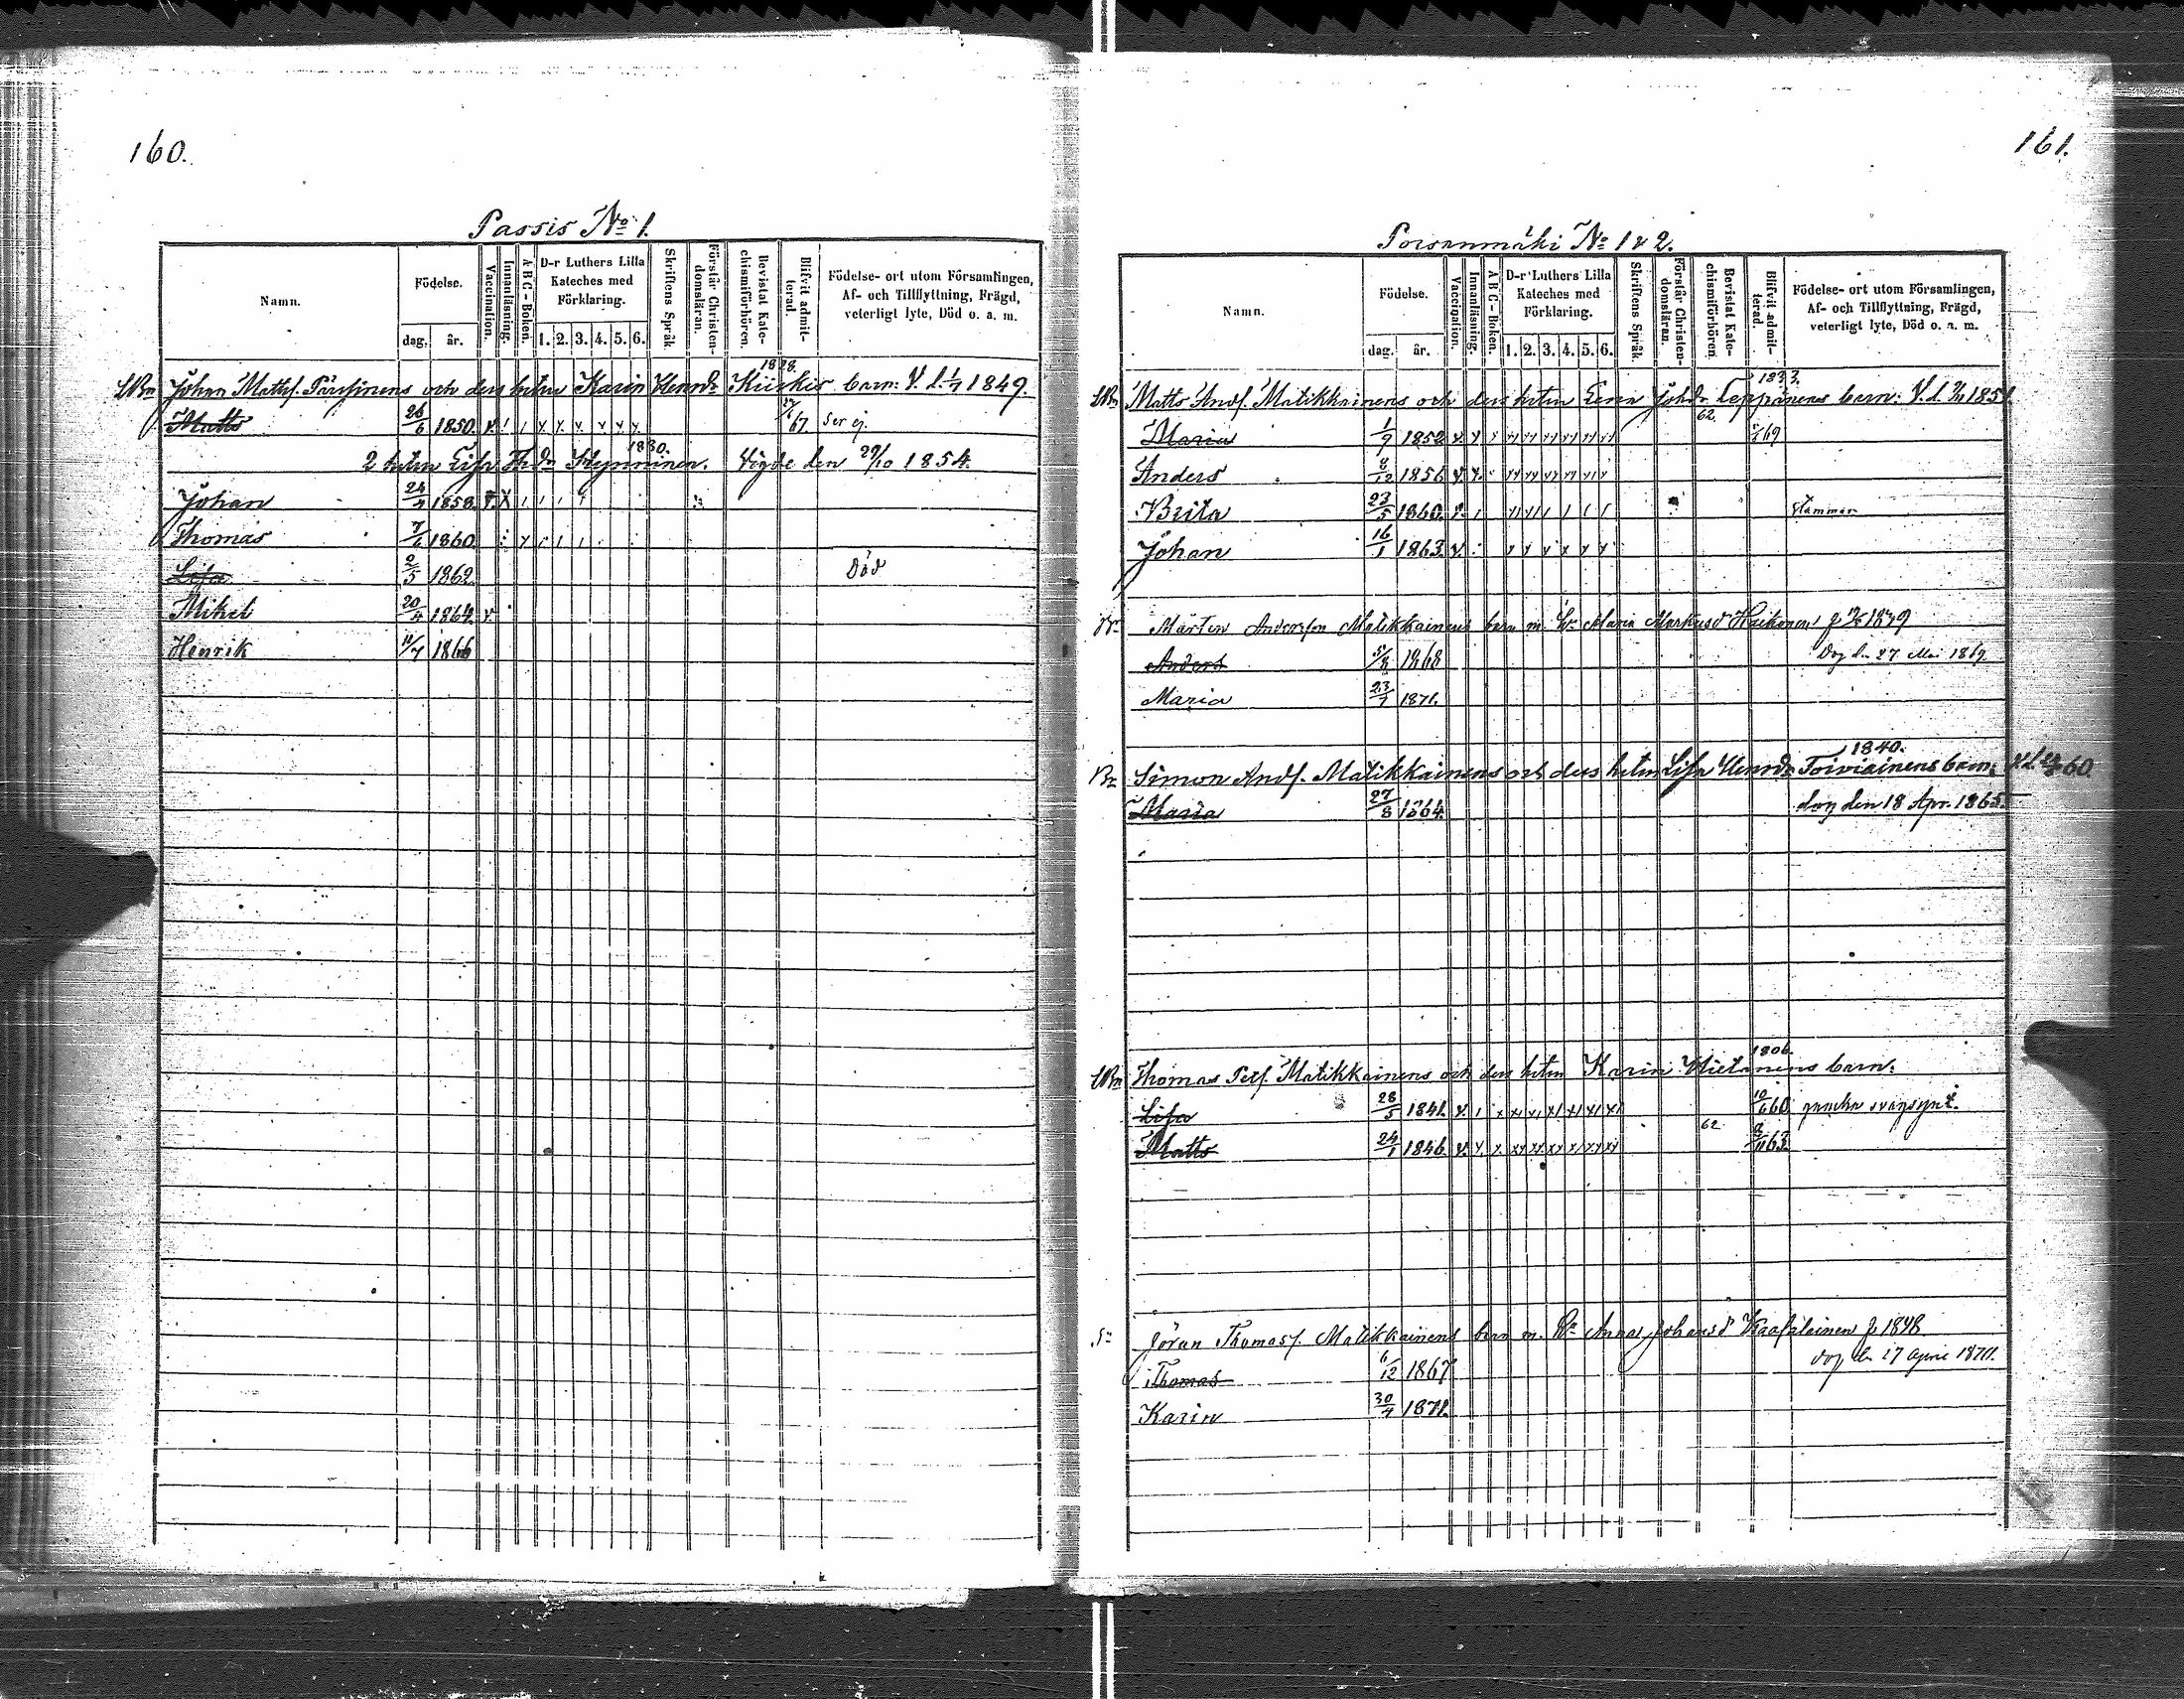 160.
Passis No 1.
Namn.
Födelse.
dag.
år.
Vaccination.
Innanläsning.
A B C - Boken.
D-r Luthers Lilla Kateches med Förklaring.
1. 2. 3. 4. 5. 6.
Skriftens Språk.
Förstår Christendomsläran.
Bevistat Katechismiförhören.
Blifvit admitterad.
Födelse- ort utom Församlingen, Af- och Tillflyttning, Frägd, veterligt lyte, Död o. a. m.
1828.
Johan Matts. Pärssinens och dess hstru Karin Henrdr Kiiskis barn: V. d. 1/7 1849.
Matts 26/6 1850. v. 27/6 67. Ser ej.
1830.
2 hstrn Lisa Hynninen. Vigde den 29/10 1854.
Johan 24/4 1858. v. X
Thomas 7/6 1860
Lisa 2/5 1862 Död
Mikel 20/4 1864. v.
Henrik 11/7 1866
161.
Porsanmäki No 1 & 2.
Namn.
Födelse.
dag.
år.
Vaccination.
Innanläsning.
A B C - Boken.
D-r Luthers Lilla Kateches med Förklaring.
1. 2. 3. 4. 5. 6.
Skriftens Språk.
Förstår Christendomsläran.
Bevistat Katechismiförhören.
Blifvit admitterad.
Födelse- ort utom Församlingen, Af- och Tillflyttning, Frägd, veterligt lyte, Död o. a. m.
1833.
Matts Ands. Matikkainens och dess hstru Lena Johdr Leppänens barn: V. d. 1851
62.
Maria 1/9 1852 v. 69
Anders 8/12 1856 v.
Brita 23/5 1860. v. Stammar
Johan 16/1 1863. v.
Mårten Andersson Matikkainens barn m. Maria Markusd Huikonen 1849
Anders 5/8 1868 Dog den 27 Mai 1869
Maria 23/7 1871.
1840.
Simon Ands. Matikkainens och dess hstru Lisa Henrdr Toiviainens barn: 60.
Maria 27/8 1864. dog den 18 Apr. 1865.
1806.
Thomas Pets. Matikkainens och dess hstru Karin Hietanens barn:
Lisa 28/5 1841. v. 60 svagsynt.
62
Matts 24/1 1846. v. 63.
Jöran Thomass. Matikkainens barn m. Anna Johansd 1848
Thomas 6/12 1867 dog den 27 April 1870.
Karin 30/4 1871.